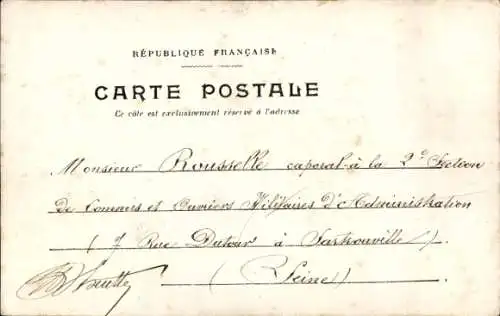 RÉPUBLIQUE FRANÇAISE
CARTE POSTALE
Ce côté est exclusivement réservé à l'adresse
Monsieur Rousselle caporal à la 2e Section
De Commis et Ouvriers Militaires D'Administration
( 7 Rue Dutour à Sartrouville )
( Seine )